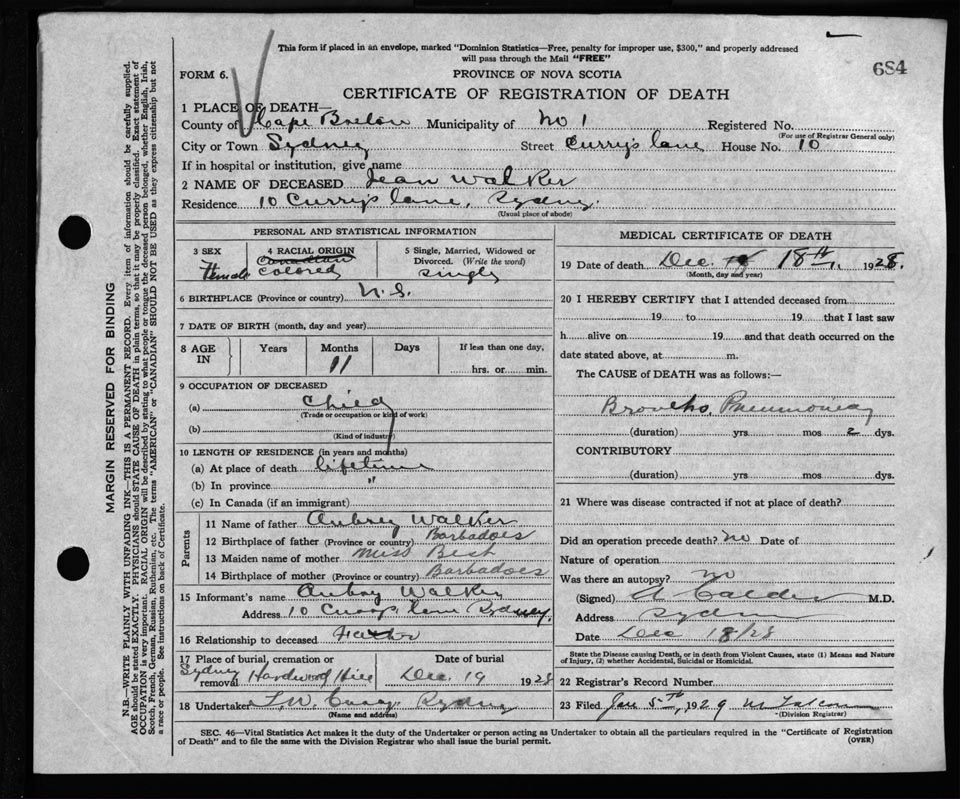 This form if placed in an envelope, marked "Dominion Statistics—Free, penalty for improper use, $300," and properly addressed
will pass through the Mail "FREE"
684
FORM 6.
PROVINCE OF NOVA SCOTIA
CERTIFICATE OF REGISTRATION OF DEATH
1 PLACE OF DEATH—
County of Cape Breton Municipality of No 1 Registered No.
(For use of Registrar General only)
City or Town Sydney Street Curry's lane House No. 10
If in hospital or institution, give name
2 NAME OF DECEASED Jean Walker
Residence 10 Curry's lane, Sydney.
(Usual place of abode)
PERSONAL AND STATISTICAL INFORMATION
3 SEX Female
4 RACIAL ORIGIN Canadian colored
5 Single, Married, Widowed or Divorced. (Write the word) single
6 BIRTHPLACE (Province or country) N.S.
7 DATE OF BIRTH (month, day and year)
8 AGE IN Years Months Days If less than one day,
11 hrs. or min.
9 OCCUPATION OF DECEASED
(a) child
(Trade or occupation or kind of work)
(b)
(Kind of industry)
10 LENGTH OF RESIDENCE (in years and months)
(a) At place of death lifetime
(b) In province "
(c) In Canada (if an immigrant)
Parents
11 Name of father Aubrey Walker
12 Birthplace of father (Province or country) Barbadoes
13 Maiden name of mother Miss Best
14 Birthplace of mother (Province or country) Barbadoes
15 Informant's name Aubrey Walker
Address 10 lane Sydney.
16 Relationship to deceased Father
17 Place of burial, cremation or removal Sydney Hardwood Hill
Date of burial Dec. 19 1928
18 Undertaker Sydney
(Name and address)
MEDICAL CERTIFICATE OF DEATH
19 Date of death Dec. 18th, 1928.
(Month, day and year)
20 I HEREBY CERTIFY that I attended deceased from
19 to 19 that I last saw
h alive on 19 and that death occurred on the
date stated above, at m.
The CAUSE of DEATH was as follows:—
Broncho Pneumonia
(duration) yrs mos 2 dys.
CONTRIBUTORY
(duration) yrs mos dys.
21 Where was disease contracted if not at place of death?
Did an operation precede death? no Date of
Nature of operation
Was there an autopsy? no
(Signed) A Calder M.D.
Address Sydney
Date Dec 18/28
State the Disease causing Death, or in death from Violent Causes, state (1) Means and Nature
of Injury, (2) whether Accidental, Suicidal or Homicidal.
22 Registrar's Record Number
23 Filed Jan 5th, 1929
(Division Registrar)
SEC. 46—Vital Statistics Act makes it the duty of the Undertaker or person acting as Undertaker to obtain all the particulars required in the "Certificate of Registration
of Death" and to file the same with the Division Registrar who shall issue the burial permit.
(OVER)
MARGIN RESERVED FOR BINDING
N.B.—WRITE PLAINLY WITH UNFADING INK—THIS IS A PERMANENT RECORD. Every item of information should be carefully supplied.
AGE should be stated EXACTLY. PHYSICIANS should STATE CAUSE OF DEATH in plain terms, so that it may be properly classified. Exact statement of
OCCUPATION is very important. RACIAL ORIGIN will be described by stating to what people or tongue the deceased person belonged, whether English, Irish,
Scotch, French, German, Russian, Ruthenian, etc. The terms "AMERICAN" or "CANADIAN" SHOULD NOT BE USED as they express citizenship but not
a race or people. See instructions on back of Certificate.